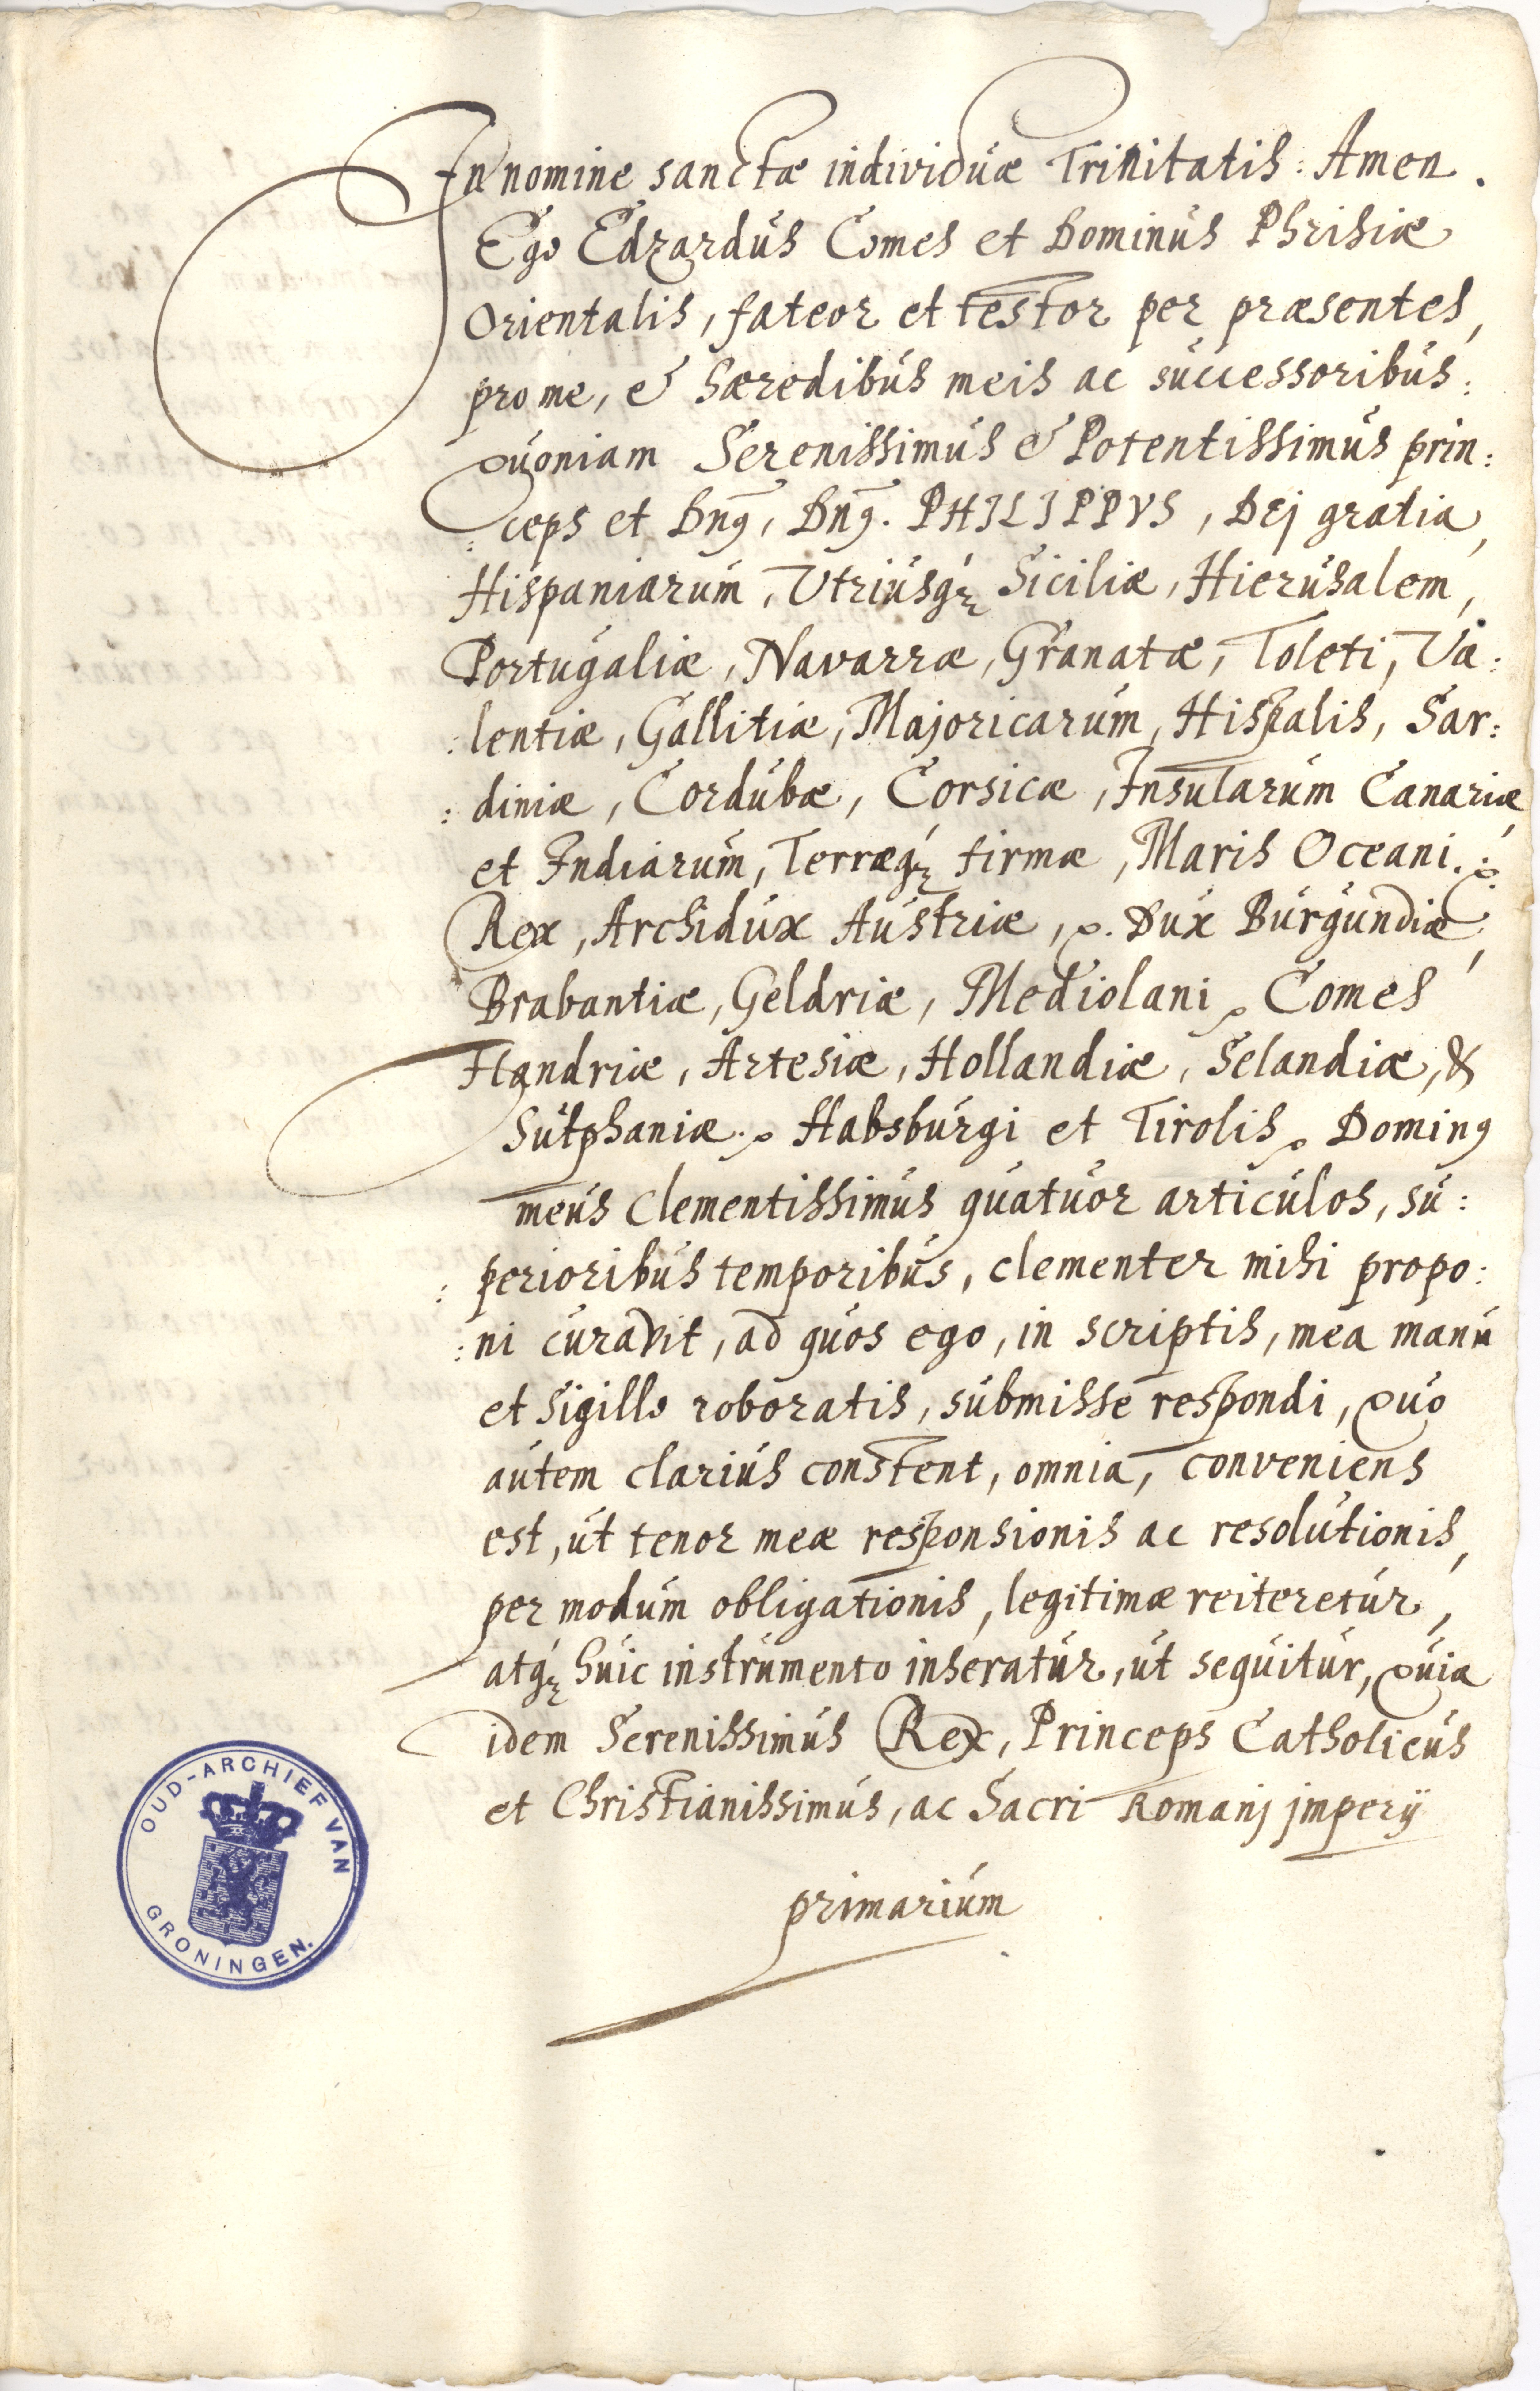 In nomine sanctæ individuæ Trinitatis: Amen.
Ego Edzardus Comes et Dominus Phrisiæ
Orientalis, fateor et testor per præsentes,
pro me, & hæredibus meis ac successoribus:
Quoniam Serenissimus & Potentissimus prin:
:ceps et Dnꝰ, Dnꝰ. PHILIPPVS, Dej gratia,
Hispaniarum, Utriusqꝫ Siciliæ, Hierusalem,
Portugaliæ, Navarræ, Granatæ, Toleti, Va:
:lentiæ, Gallitiæ, Majoricarum, Hispalis, Sar:
:diniæ, Cordubæ, Corsicæ, Insularum Canariæ
et Indiarum, Terræqꝫ firmæ, Maris Oceani.
Rex, Archidux Austriæ, Dux Burgundiæ,
Brabantiæ, Geldriæ, Mediolani, Comes
Flandriæ, Artesiæ, Hollandiæ, Selandiæ, &
Sutphaniæ. Habsburgi et Tirolis, Dominꝰ
meus Clementissimus quatuor articulos, su:
:perioribus temporibus, clementer mihi propo:
:ni curavit, ad quos ego, in scriptis, mea manu
et Sigillo roboratis, submisse respondi, Quo
autem clarius constent, omnia, conveniens
est, ut tenor meæ responsionis ac resolutionis,
per modum obligationis, legitimæ reiteretur,
atqꝫ huic instrumento inseratur, ut sequitur, Quia
idem Serenissimus Rex, Princeps Catholicus
et Christianissimus, ac Sacri Romanj jmperij
primarium
OUD-ARCHIEF VAN
GRONINGEN.